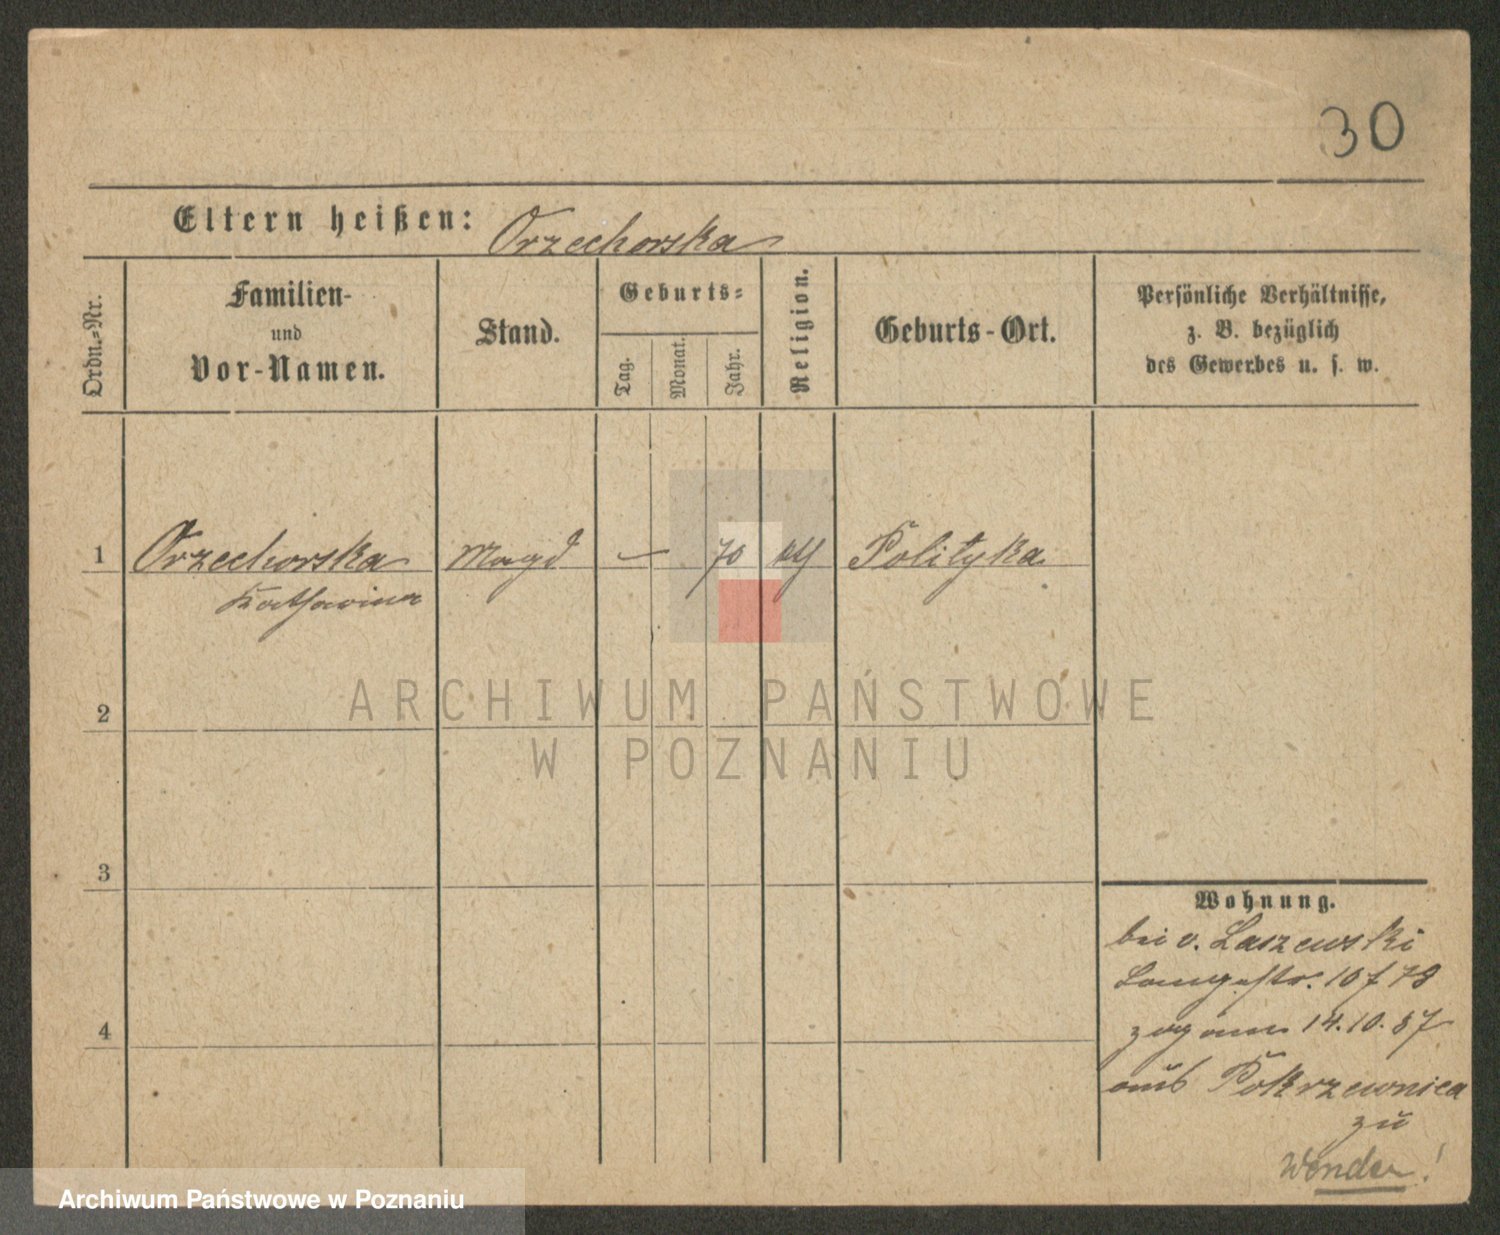 30
Eltern heißen: Orzechorska
Ordn.-Nr.
Familien-
und
Vor-Namen.
Stand.
Geburts-
Tag.
Monat.
Jahr.
Religion.
Geburts-Ort.
Persönliche Verhältnisse,
z. B. bezüglich
des Gewerbes u. s. w.
1 Orzechorska Magd — 70 Polityka
Katharina
2
3
4
Wohnung.
bei v. Laszewski
Langestr. 10 f 78
zog am 14.10.87
aus Pokrzewnica
zu
Wenden!
ARCHIWUM PAŃSTWOWE
W POZNANIU
Archiwum Państwowe w Poznaniu